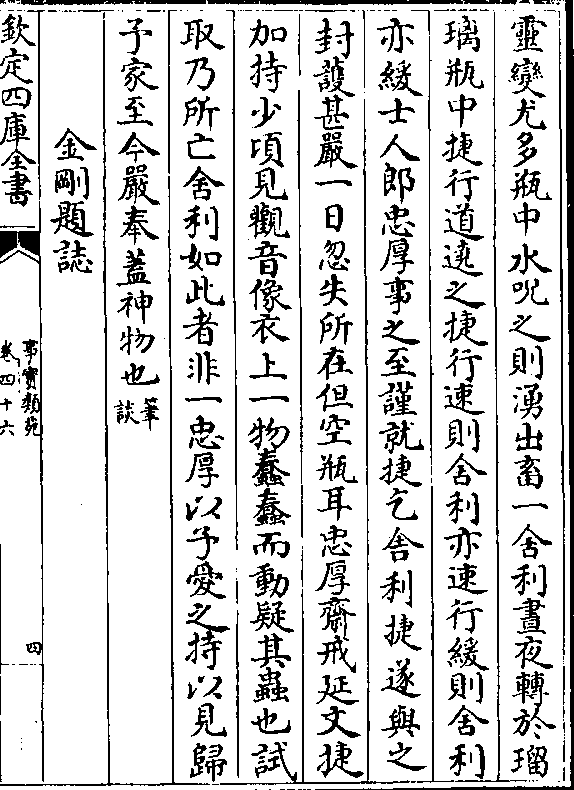 靈變尤多瓶中水呪之則湧出畜一舍利晝夜轉於瑠
璃瓶中捷行道遶之捷行速則舍利亦速行緩則舍利
亦緩士人郎忠厚事之至謹就捷乞舍利捷遂與之
封護甚嚴一日忽失所在但空瓶耳忠厚齋戒延文捷
加持少頃見觀音像衣上一物蠢蠢而動疑其蟲也試
取乃所亡舍利如此者非一忠厚以予愛之持以見歸
予家至今嚴奉蓋神物也筆談
金剛題誌
欽定四庫全書
事實類苑
卷四十六
四